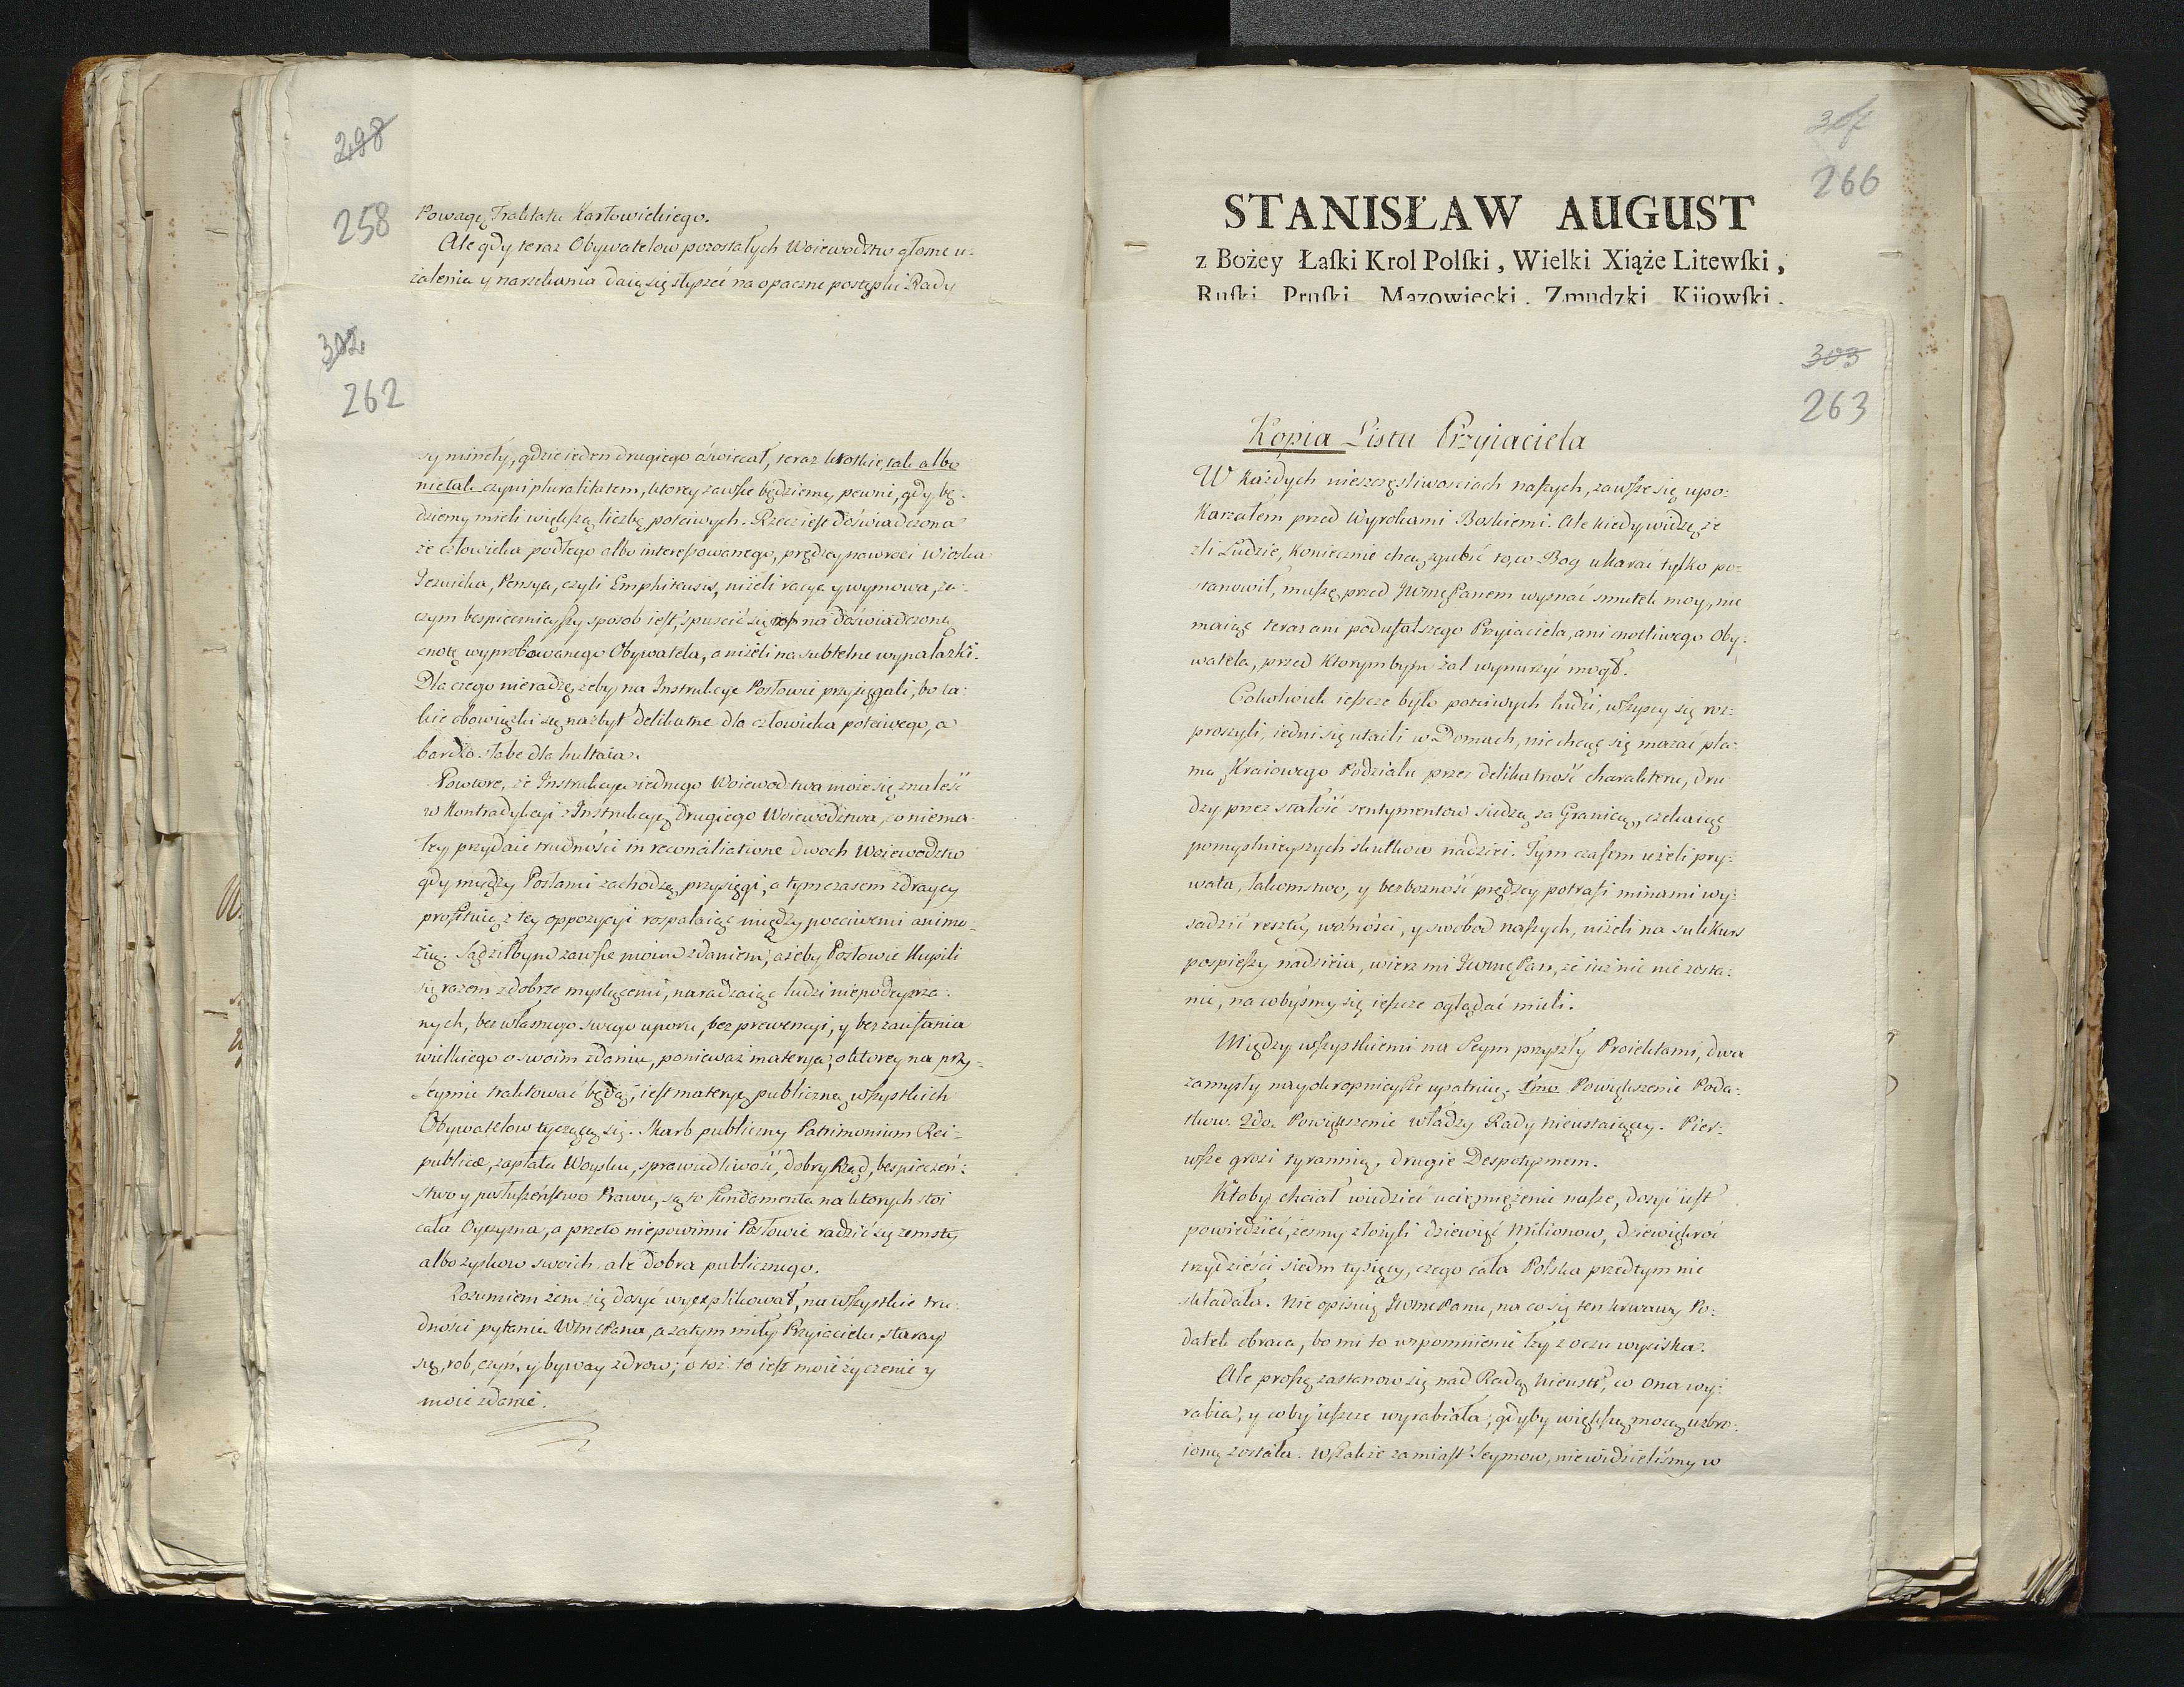 298
258
Powagę Traktatu Karłowickiego.
Ale gdy teraz Obywatelow pozostałych Woiewodztw głome u-
żalenia y narzekania daią się słyszeć na opaczne postępki Rady
302
262
sy minęły, gdzie ieden drugiego oświecał, teraz krotkie, tak albo
nie tak czyni pluralitatem, ktorey zawsze będziemy pewni, gdy bę-
dziemy mieli większą liczbę poćciwych. Rzecz iest doświadczona
że człowieka podłego albo interessowanego, prędzey nawroci Wioska
Jezuicka, Pensya, czyli Emphiteusis, niżeli racye y wymowa, za-
czym bespiecznieyszy sposob iest, spuscić się na doświadczoną
cnotę wyprobowanego Obywatela, a niżeli na subtelne wynalazki.
Dla czego nie radzę, żeby na Instrukcye Posłowie przysięgali, bo ta-
kie obowiązki są nazbyt delikatne dla człowieka poćciwego, a
bardzo słabe dla hultaia.
Powtore, że Instrukcya iednego Woiewodztwa może się znaleść
w Kontradykcyi z Instrukcyą drugiego Woiewodztwa, co niema-
łey przydaie trudności in reconciliatione dwoch Woiewodztw
gdy między Posłami zachodzą przysięgi, a tymczasem zdraycy
profituią z tey oppozycyi rozpalaiąc między poćciwemi animo-
zią. Sądziłbym zawsze moim zdaniem, ażeby Posłowie kupili
się razem z dobrze myslącemi, naradzaiąc ludzi niepodeyrza-
nych, bez własnego swego uporu, bez prewencyi, y bez zaufania
wielkiego o swoim zdaniu, ponieważ materya, o ktorey na przy-
Seymie traktować będą, iest materyą publiczną wszystkich
Obywatelow tyczącą się. Skarb publiczny Patrimonium Rei-
publicæ, zapłata Woysku, sprawiedliwość, dobry Rząd, bespieczeń-
stwo y posłuszeństwo Prawu, są to fundamenta na ktorych stoi
cała Oyczyzna, a przeto niepowinni Posłowie radzić się zemsty,
albo zyskow swoich, ale dobra publicznego.
Rozumiem żem się dosyć wyexplikował, na wszystkie tru-
dności pytania WMcPana, a zatym miły Przyiacielu, staray
się, rob, czyń, y byway zdrow; otoż to iest moie życzenie y
moie zdanie.
307
266
STANISŁAW AUGUST
z Bożey Łaſki Krol Polſki, Wielki Xiąże Litewſki,
Ruſki Pruſki Mazowiecki, Zmudzki Kijowſki,
303
263
Kopia Listu Przyiaciela
W każdych nieszczęsliwosciach naszych, zawsze się upo-
karzałem przed Wyrokami Boskiemi. Ale kiedy widzę, że
zli Ludzie, koniecznie chcą zgubić to, co Bog ukarać tylko po-
stanowił, muszę przed JWmcPanem wyznać smutek moy, nie
maiąc teraz ani podufalszego Przyiaciela, ani cnotliwego Oby-
watela, przed ktorym bym żal wynurzyć mogł.
Cokolwiek ieszcze było poćciwych ludzi, wszyscy się roz-
proszyli, iedni się utaili w Domach, nie chcąc się mazać pla-
mą Kraiowego Podziału przez delikatność charakteru, dru-
dzy przez stałość sentymentow siedzą za Granicą, czekaiąc
pomyslnieyszych skutkow nadziei. Tym czasem ieżeli pry-
wata, łakomstwo, y bezbożność prędzey potrafi minami wy-
sadzić resztę wolności, y swobod naszych, niżeli na sukkurs
pospieszy nadzieia, wierz mi JWmcPan, że iuż nic nie zosta-
nie, na cobyśmy się ieszcze oglądać mieli.
Między wszystkiemi na Seym przyszły Proiektami, dwa
zamysły nayokropnieysze upatruię. 1mo Powiększenie Poda-
tkow. 2do. Powiększenie władzy Rady Nieustaiącey. Pier-
wsze grozi tyrannią, drugie Despotyzmem.
Ktoby chciał wiedzieć uciemiężenie nasze, dosyć iest
powiedzieć, żesmy złożyli dziewięć Milionow, dziewięćkroć
trzydzieści siedm tysięcy, czego cała Polska przedtym nie
składała. Nie opisuię JWmcPanu, na co się ten krwawy Po-
datek obraca, bo mi to wspomnienie łzy z oczu wyciska.
Ale proszę zastanow się nad Radą Nieust:, co ona wy-
rabia, y coby ieszcze wyrabiała, gdyby większą mocą uzbro-
ioną została. Wszakże zamiast Seymow, niewidzieliśmy w